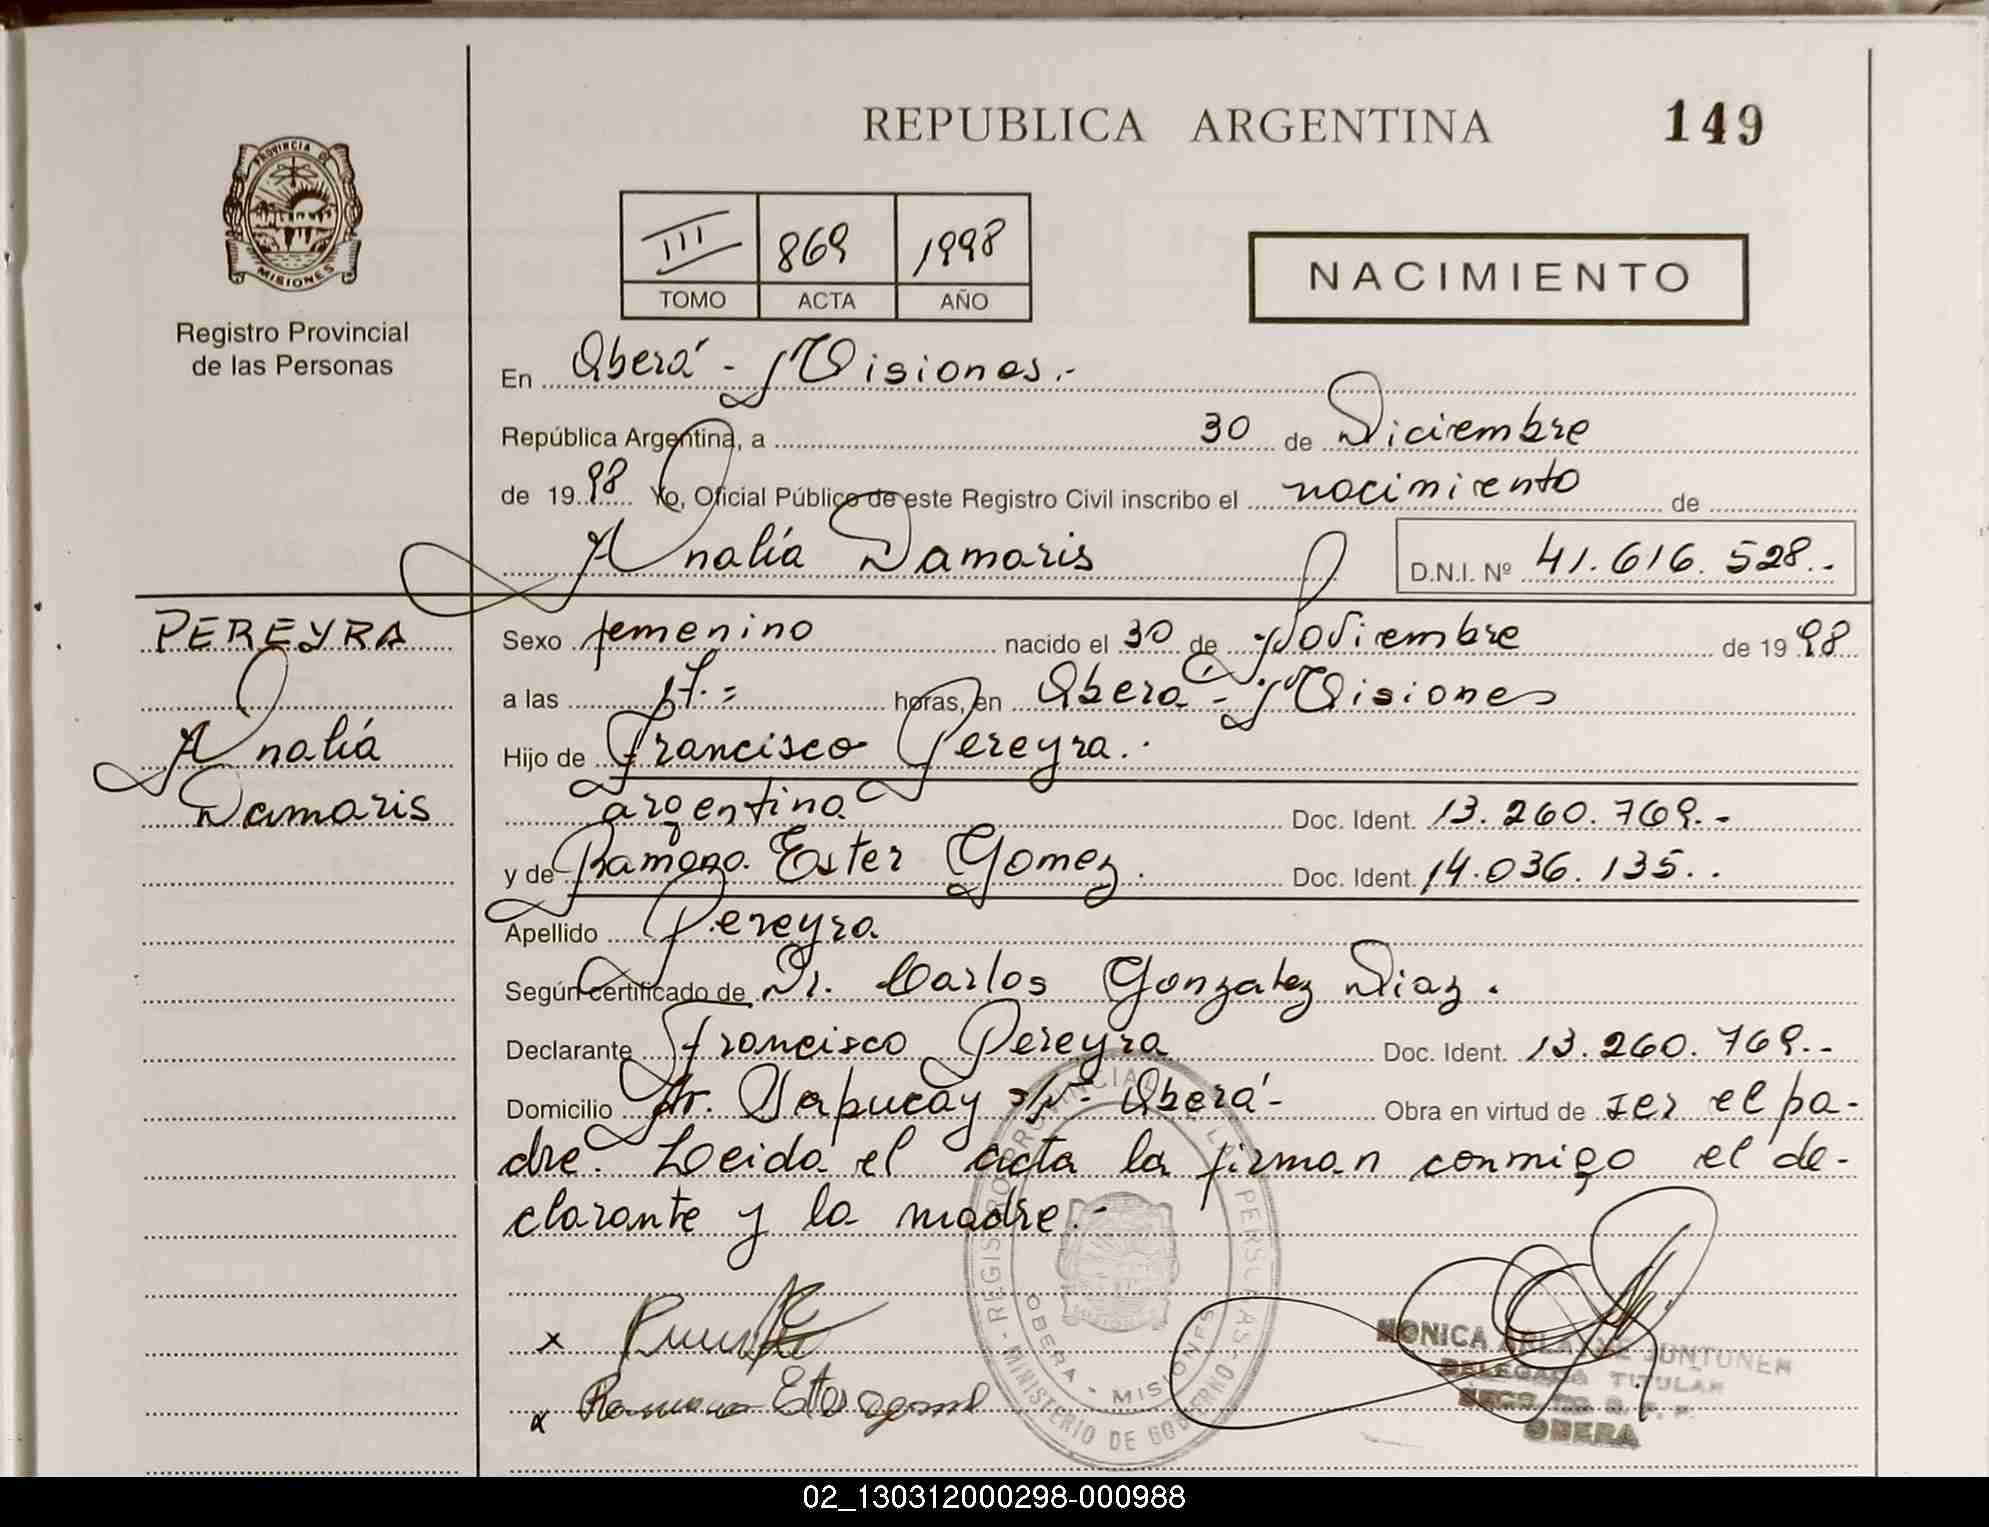 REPUBLICA ARGENTINA
149
PROVINCIA DE
MISIONES
Registro Provincial
de las Personas
III 869 1998
TOMO ACTA AÑO
NACIMIENTO
En Oberá - Misiones.-
República Argentina, a 30 de Diciembre
de 1998 Yo, Oficial Público de este Registro Civil inscribo el nacimiento de
Analía Damaris
D.N.I. Nº 41.616.528.-
PEREYRA
Analía
Damaris
Sexo femenino nacido el 30 de Noviembre de 1998
a las 17.= horas, en Oberá - Misiones
Hijo de Francisco Pereyra.-
argentina Doc. Ident. 13.260.769.-
y de Ramona Ester Gomez. Doc. Ident. 14.036.135..
Apellido Pereyra
Según certificado de Dr. Carlos Gonzalez Diaz.
Declarante Francisco Pereyra Doc. Ident. 13.260.769.-
Domicilio Av. Yerbal s/nº Oberá- Obra en virtud de ser el pa-
dre. Leida el acta la firman conmigo el de-
clarante y la madre.-
x
x Ramona Ester gomez
REGISTRO PROVINCIAL DE LAS PERSONAS - MINISTERIO DE GOBIERNO -
OBERA - MISIONES
MONICA JUNTUNEN
DELEGADA TITULAR
OBERA
02_130312000298-000988